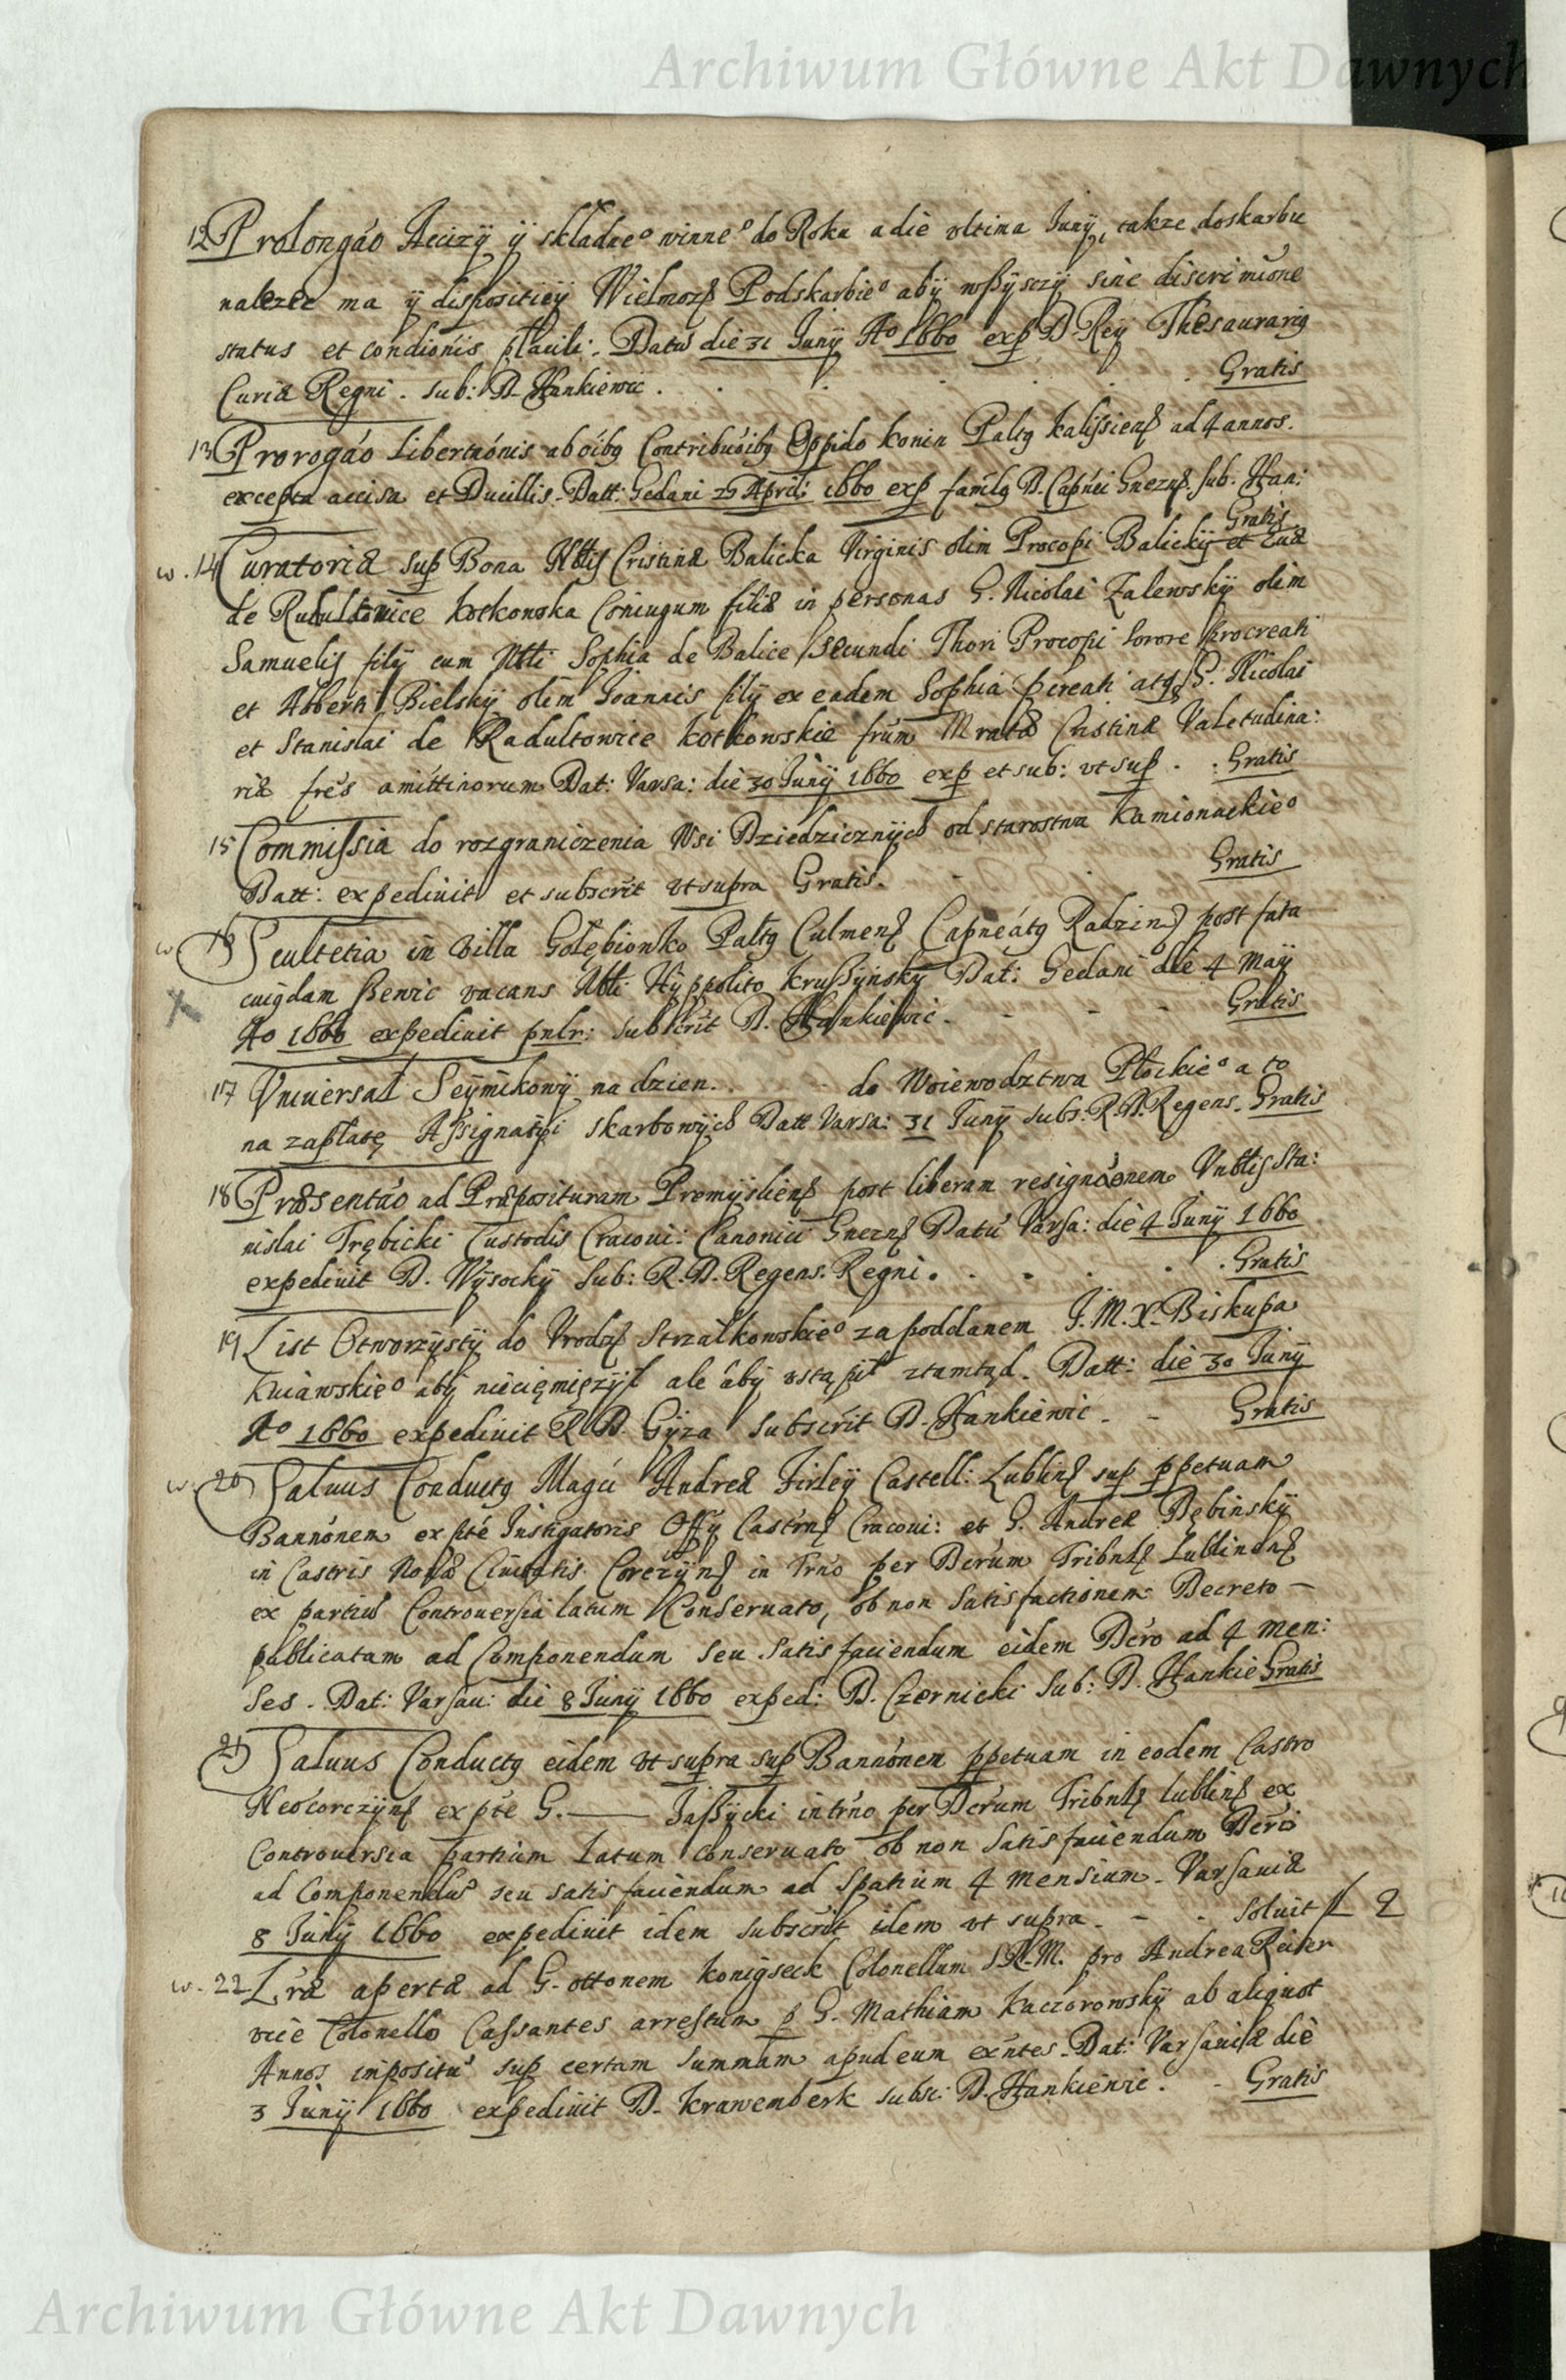 Archiwum Główne Akt Dawnych
12 Prolongáo Accizÿ ÿ składne° winne° do Roku a die vltima Junÿ, takze doskarbu
nalezec ma ÿ dispositieÿ Wielmoz Podskarbie° abÿ wßÿsczÿ sine discrimione
status et condionis płacili. Datu die 31 Junÿ A° 1660 exp D. Reÿ Thesaurarig
Curiæ Regni. sub: D. Hankiewic. Gratis
13 Prorogáo Libertaónis ab oíbg Contribuóibg Oppido Konin Paltg kalissiens ad 4 annos.
excepta accisa et Ducillis. Datt: Gedani 29 April: 1660 exp famlg D. Capnei Gnezns. sub: Han:
Gratis
w. 14 Curatoria sup Bona Nblis Cristinæ Balicka Virginis olim Procopi Balickÿ et Euæ
de Radultowice kotkowska Coniugum filiæ in personas G. Nicolai Zalewskÿ olim
Samuelis filÿ cum Nbli Sophia de Balice secundi Thori Procopi sorore procreati
et Alberti Bielskÿ olim Joannis filÿ ex eadem Sophia pcreati atq G. Nicolai
et Stanislai de Radultowice kotkowskie frum Mratæ Cristinæ Valetudina:
riæ fres amittinorum Dat: Varsa: die 30 Junÿ 1660 exp et sub: vt sup. Gratis
15 Commissia do rozgraniczenia Wsi Dziedzicznÿch od starostwa Kamionackie°
Datt: expediuit et subscrit vt supra Gratis. Gratis
w 16 Scultetia in villa Golębiowko Paltg Culmens Capneátg Radzins post fata
cuigdam Bewic vacans Nbli Hÿppolito krußÿnskÿ Dat: Gedani die 4 Maÿ
A° 1660 expediuit pnlr: subscrit D. Hankiewic. Gratis
17 Vniuersał Seÿmikowÿ na dzien. do Woiewodztwa Płockie° a to
na zapłatę Assignatÿi skarbowÿch Datt Varsa: 31 Junÿ subs: R. D. Regens. Gratis
18 Præsentáo ad Præposituram Premÿsliens post liberam resignáonem Vnblis Sta:
nislai Trębicki Custodis Cracoui: Canonici Gnezns Datu Varsa: die 4 Junÿ 1660
expediuit D. Wÿsockÿ sub: R. D. Regens. Regni. Gratis
19 List Otworzÿstÿ do Vrodz Strzałkowskie° za poddanem J. M. X. Biskupa
kuiawskie° abÿ niecięmięzÿł ale abÿ vstąpił ztamtąd. Datt: die 30 Junÿ
A° 1660 expediuit R D. Gÿza subscrit D. Hankiewic. Gratis
w. 20 Saluus Conductg Magci Andreæ Firleÿ Castell: Lublins sup ppetuam
Bannónem ex pte Instigatoris Offÿ Castrns Cracoui: et G. Andreæ Dębinskÿ
in Castris Nouæ Ciuitatis Corczÿns in Trno per Dcrum Tribnls Lublinens
ex partiu Controuersia latum Conseruato, ob non satisfactionem Decreto –
publicatam ad Componendum seu satisfaciendum eidem Dcro ad 4 men:
ses. Dat: Varsau: die 8 Junÿ 1660 exped: D. Czernicki sub: D. Hankie Gratis
21 Saluus Conductg eidem vt supra sup Bannónem ppetuam in eodem Castro
Neocorczÿns ex pte G. —— Jaßÿcki in trno per Dcrum Tribnls lublins ex
Controuersia partium Latum conseruato ob non satisfaciendum Dcro
ad Componendu seu satisfaciendum ad spatium 4 mensium. Varsauiæ
8 Junÿ 1660 expediuit idem subscrit idem vt supra. – – soluit # 2
w. 22 Lræ apertæ ad G. Ottonem konigseck Colonellum S. R. M. pro Andrea Reiter
vice Colonello Cassantes arrestum p G. Mathiam kaczorowskÿ ab aliquot
Annos impositu sup certam summam apud eum exntes. Dat: Varsauiæ die
3 Junÿ 1660 expediuit D. krawemberk subsc: D. Hankiewic. Gratis
Archiwum Główne Akt Dawnych